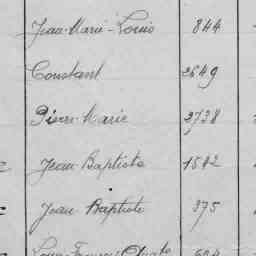 Jean-Marie-Louis 844
Constant 2649
Pierre-Marie 2738
Jean-Baptiste 1582
Jean Baptiste 375